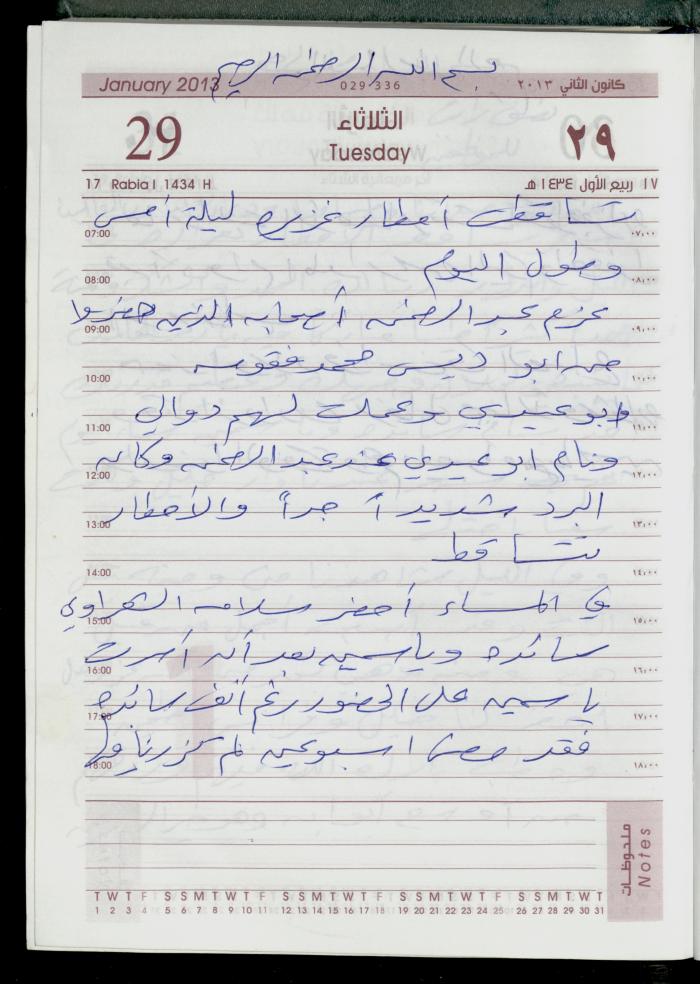 بسم الله الرحمن الرحيم
January 2013 029 336 كانون الثاني ٢٠١٣
29 الثلاثاء ٢٩
Tuesday
17 Rabia I 1434 H ١٧ ربيع الأول ١٤٣٤ هـ
تساقطت أمطار غزيره ليلة أمس
07:00 ٠٧:٠٠
وطول اليوم
08:00 ٠٨:٠٠
عزم عبد الرحمن أصحابه الذين حضروا
09:00 ٠٩:٠٠
من ابو ديس محمد فقوسه
10:00 ١٠:٠٠
وابو عيدي وعملت لهم دوالي
11:00 ١١:٠٠
ونام ابو عيدي عند عبد الرحمن وكان
12:00 ١٢:٠٠
البرد شديداً جداً والأمطار
13:00 ١٣:٠٠
تتساقط
14:00 ١٤:٠٠
في المساء أحضر سلامه الشعراوي
15:00 ١٥:٠٠
سائده وياسمين بعد أن أصرت
16:00 ١٦:٠٠
ياسمين على الحضور رغم أنف سائده
17:00 ١٧:٠٠
فقد مضى اسبوعين لم تزرنا فيها
18:00 ١٨:٠٠
ملحوظات
Notes
T W T F S S M T W T F S S M T W T F S S M T W T F S S M T W T
1 2 3 4 5 6 7 8 9 10 11 12 13 14 15 16 17 18 19 20 21 22 23 24 25 26 27 28 29 30 31